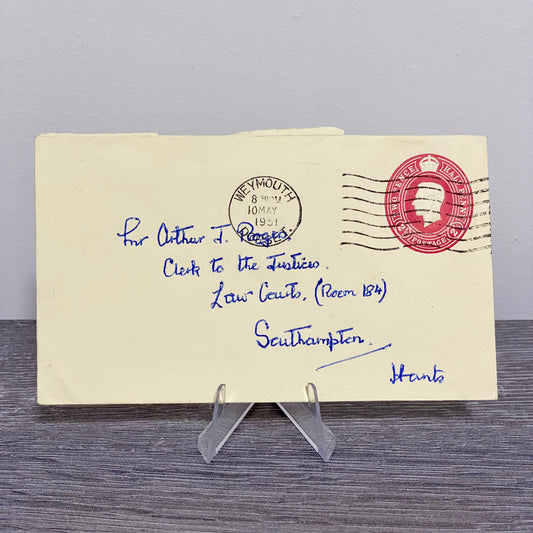 WEYMOUTH
8
10 MAY
1951
DORSET.
TWO PENCE HALF PENNY
POSTAGE
Arthur J.
Clerk to the Justices.
Law Courts, (Room 184)
Southampton.
Hants